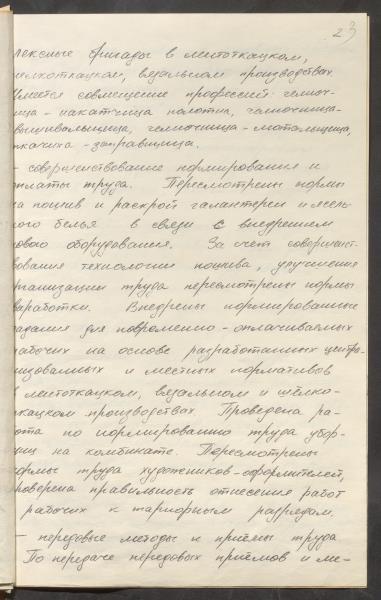 23
лексные бригады в лентоткацком,
шелкоткацком, вязальном производствах.
Имеется совмещение профессий: челноч-
ница - накатчица полотна, челночница-
вышивальщица, челночница - мотальщица,
ткачиха - заправщица.
- совершенствование нормирования и
оплаты труда. Пересмотрены нормы
на пошив и раскрой галантереи и
ного белья в связи с внедрением
нового оборудования. За счет совершенст-
вования технологии пошива, улучшения
организации труда пересмотрены нормы
выработки. Внедрены нормированные
задания для повременно-оплачиваемых
рабочих на основе разработанных центра-
лизованных и местных нормативов
в лентоткацком, вязальном и шёлко-
ткацком производствах. Проведена ра-
бота по нормированию труда убор-
щиц на комбинате. Пересмотрены
нормы труда художников-оформителей,
проверена правильность отнесения работ
и рабочих к тарифным разрядам.
- передовые методы и приёмы труда
По передаче передовых приёмов и ме-